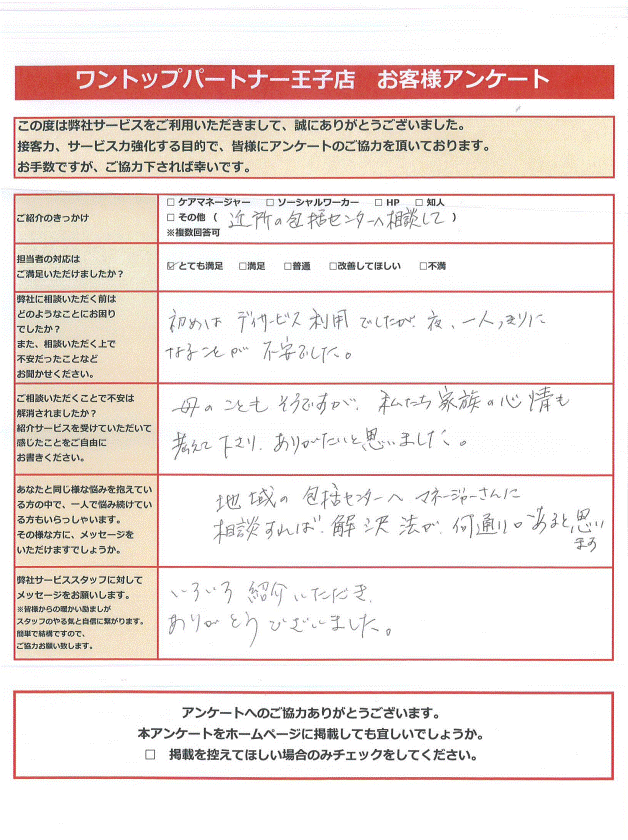 ワントップパートナー王子店　お客様アンケート
この度は弊社サービスをご利用いただきまして、誠にありがとうございました。
接客力、サービス力強化する目的で、皆様にアンケートのご協力を頂いております。
お手数ですが、ご協力下されば幸いです。
ご紹介のきっかけ
□ ケアマネージャー　□ ソーシャルワーカー　□ HP　□ 知人
□ その他（ 近所の包括センターへ相談して ）
※複数回答可
担当者の対応は
ご満足いただけましたか？
☑とても満足　□満足　□普通　□改善してほしい　□不満
弊社に相談いただく前は
どのようなことにお困り
でしたか？
また、相談いただく上で
不安だったことなど
お聞かせください。
初めは デイサービス利用でしたが、夜、一人っきりに
なることが 不安でした。
ご相談いただくことで不安は
解消されましたか？
紹介サービスを受けていただいて
感じたことをご自由に
お書きください。
母のことも そうですが、私たち家族の心情も
考えて下さり、ありがたいと思いました。
あなたと同じ様な悩みを抱えてい
る方の中で、一人で悩み続けてい
る方もいらっしゃいます。
その様な方に、メッセージを
いただけますでしょうか。
地域の 包括センターへ マネージャーさんに
相談すれば、解決法が、何通りも あると思い
ます
弊社サービススタッフに対して
メッセージをお願いします。
※皆様からの暖かい励ましが
スタッフのやる気と自信に繋がります。
簡単で結構ですので、
ご協力お願い致します。
いろいろ 紹介いただき、
ありがとうございました。
アンケートへのご協力ありがとうございます。
本アンケートをホームページに掲載しても宜しいでしょうか。
□　掲載を控えてほしい場合のみチェックをしてください。